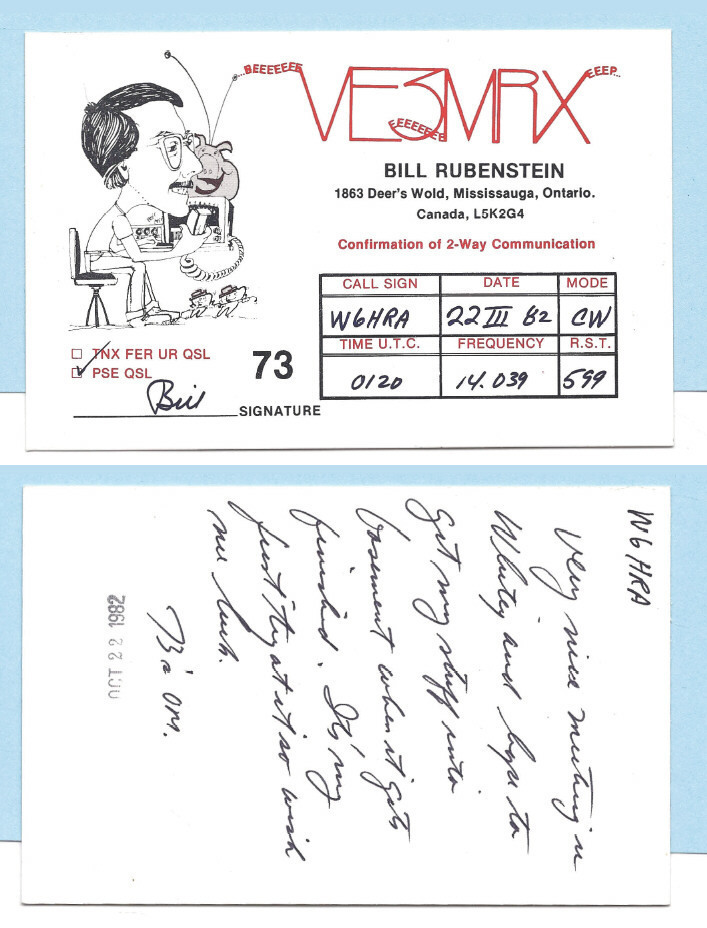 ...BEEEEEEE
VE3MRX
EEEEEEEE
EEEP...
BILL RUBENSTEIN
1863 Deer's Wold, Mississauga, Ontario.
Canada, L5K2G4
Confirmation of 2-Way Communication
CALL SIGN DATE MODE
W6HRA 22 III 82 CW
TIME U.T.C. FREQUENCY R.S.T.
0120 14.039 599
TNX FER UR QSL
PSE QSL
73
Bill
SIGNATURE
W6HRA
Very nice meeting u
Whitey and hope to
get my stuff into
basement when it gets
finished. It's my
first try at it so wish
me luck.
73's om.
OCT 22 1982